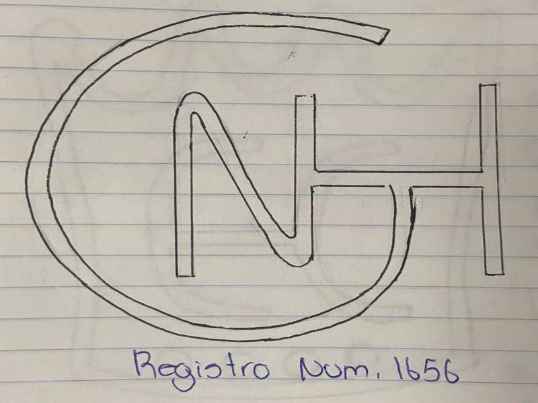 GNH
Registro Num. 1656